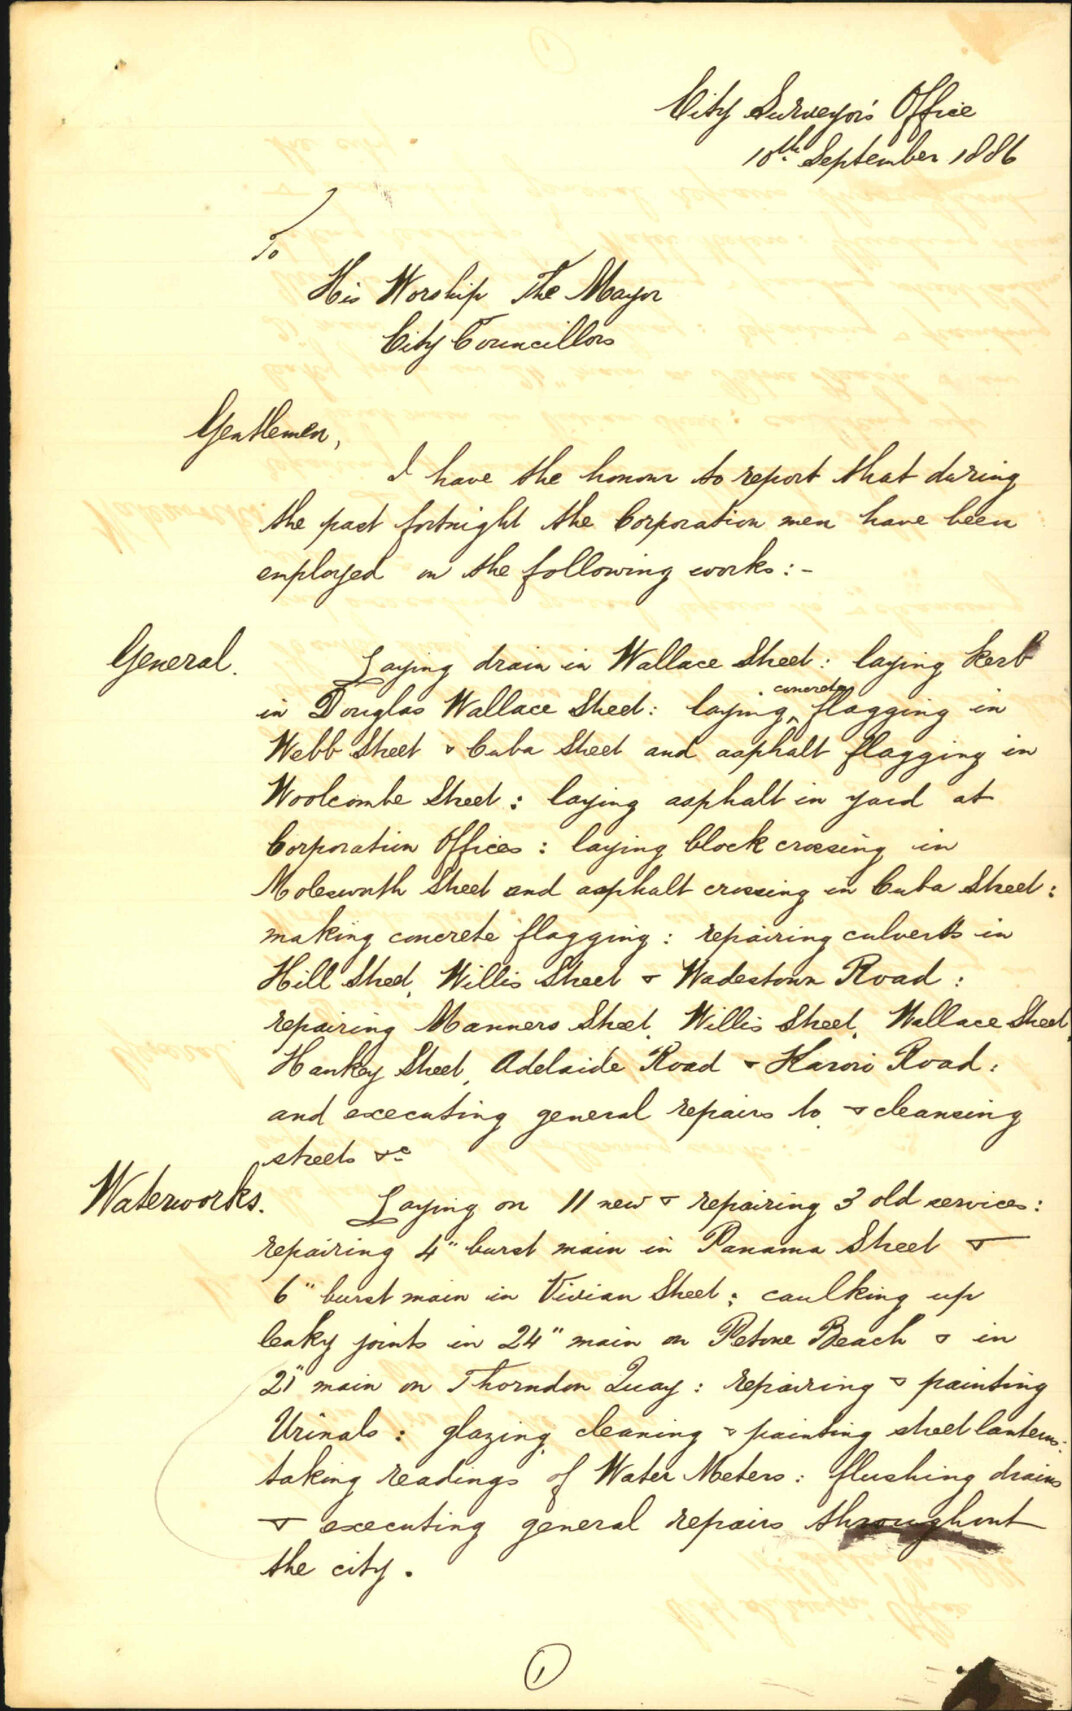 City Surveyor's Office
10th September 1886
To
His Worship The Mayor
City Councillors
Gentlemen,
I have the honour to report that during
the past fortnight the Corporation men have been
employed on the following works:-
General. Laying drain in Wallace Street: laying kerb
in Douglas Wallace Street: laying concrete flagging in
Webb Street & Cuba Street and asphalt flagging in
Woolcombe Street: laying asphalt in yard at
Corporation Offices: laying block crossing in
Molesworth Street and asphalt crossing in Cuba Street:
making concrete flagging: repairing culverts in
Hill Street, Willis Street & Wadestown Road:
repairing Manners Street, Willis Street, Wallace Street,
Hankey Street, Adelaide Road & Karori Road:
and executing general repairs to & cleansing
streets &c
Waterworks. Laying on 11 new & repairing 3 old services:
repairing 4" burst main in Panama Street &
6" burst main in Vivian Street: caulking up
leaky joints in 24" main on Petone Beach & in
21" main on Thorndon Quay: repairing & painting
Urinals: glazing, cleaning & painting street lanterns:
taking readings of Water Meters: flushing drains
& executing general repairs throughout
the city.
1